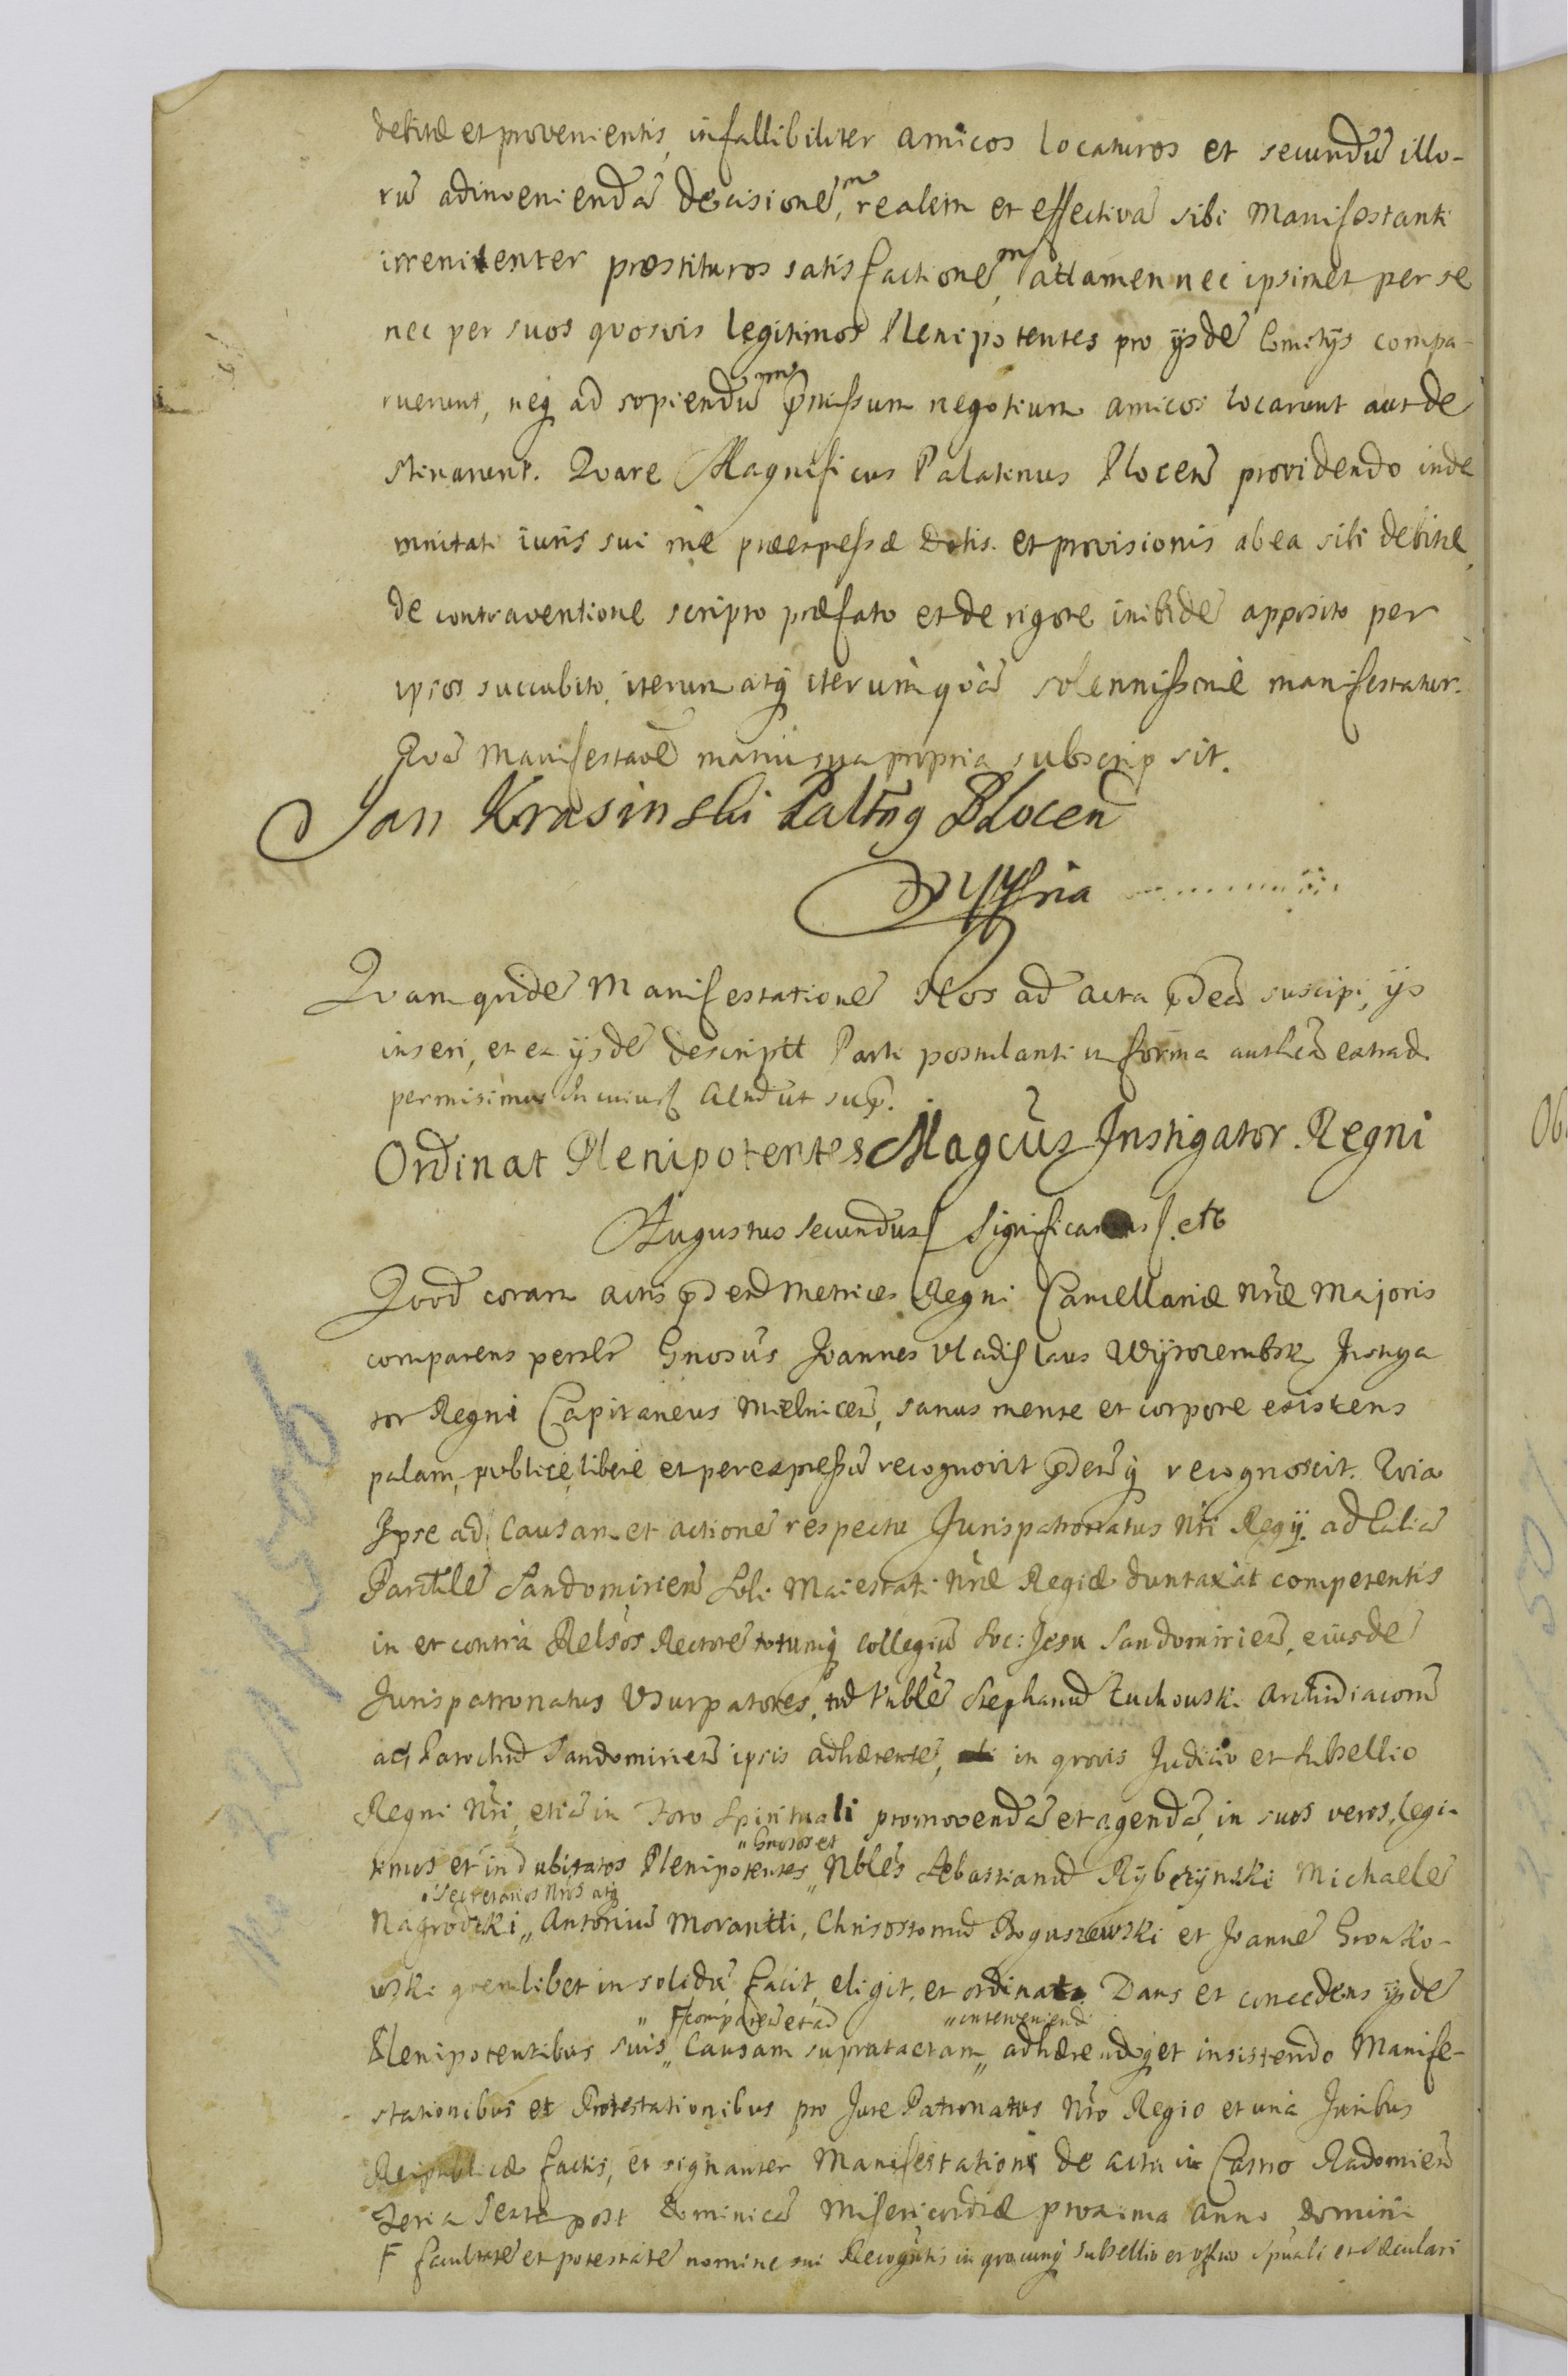 debitæ et provenientis, infallibiliter amicos locaturos et secundũ illo-
rũ adinveniendã decisionẽ, realem et effectivã sibi Manifestanti
irrenitenter præstituros satisfactionẽ, attamen nec ipsimet per se
nec per suos quosvis legitimos Plenipotentes pro ijsdẽ Comitijs compa-
ruerunt, neq ad sopiendũ p̃missum negotium amicos locarunt aut de
stinarunt. Quare Magnificus Palatinus Plocen̄ providendo inde
mnitati iuris sui rñe præexpressæ Dotis et provisionis ab ea sibi debitæ,
de contraventione scripto præfato et de rigore inibidẽ apposito per
ipsos succubito, iterum atq iterumq̃ solennissimè manifestatur.
Quã Manifestaõẽ manu sua propria subscripsit.
Jan Krasinski Paltng Plocen̄
Quam quidẽ Manifestationẽ Nos ad acta p̃dca suscipi, ijs
inseri, et ex ijsdẽ descriptt Parti postulanti in forma authcã extrad
permisimus In cuius Actũ ut sup̃.
Ordinat Plenipotentes Magcus Instigator Regni
Augustus Secundus Significamus etc
Quod coram actis p̃dend Metrices Regni Cancellariæ Nræ Majoris
comparens persłr Gnosus Joannes Vladislaus Wijrozembsk Instiga
tor Regni Capitaneus Mielnicen̄, sanus mente et corpore existens
palam, publicè, liberè et per expressũ recognovit p̃denq recognoscit. Quia
Ipse ad Causam et actionẽ respectu Jurispatronatus Nri Regij ad Ecclia
Parchłẽ Sandomirien̄ soli Maiestati Nræ Regiæ duntaxat competentis
in et contra Relsos Rectorẽ totumq Collegiũ Soc: Jesu Sandomirien̄, eiusdẽ
Jurispatronatus Usurpatores, tud Vnblẽ Stephanũ Żuchowski Archidiaconũ
ac Parochũ Sandomirien̄ ipsis adhærentẽ, in quovis Judicio et Subsellio
Regni Nri, etiã in Foro Spirituali promovendã et agendã, in suos veros, legi-
timos et indubitatos Plenipotentes „ Nbles Sebastianũ Rybczynski Michaelẽ
„ Gnosos et
„ Secretarios Nros atq
Nagrodzki „ Antoniũ Moranti, Chrisostomũ Boguszewski et Joannẽ Gronko-
wski quemlibet in solidũ facit, eligit, et ordinat. Dans et concedens ijsdẽ
„ F comparen et ad „ interveniend
Plenipotentibus suis „ Causam supratactam „ adhærendoq et insistendo Manife-
stationibus et Protestationibus pro Jure Patronatus Nro Regio et unà Juribus
Reipublicæ factis, et signanter Manifestationi de actu in Castro Radomien̄
Feria Sexta post Dominicã Misericordiæ proxima Anno Domini
F facultatẽ et potestatẽ nomine sui Recogntis in quocunq Subsellio et officio Spuali et Sæculari